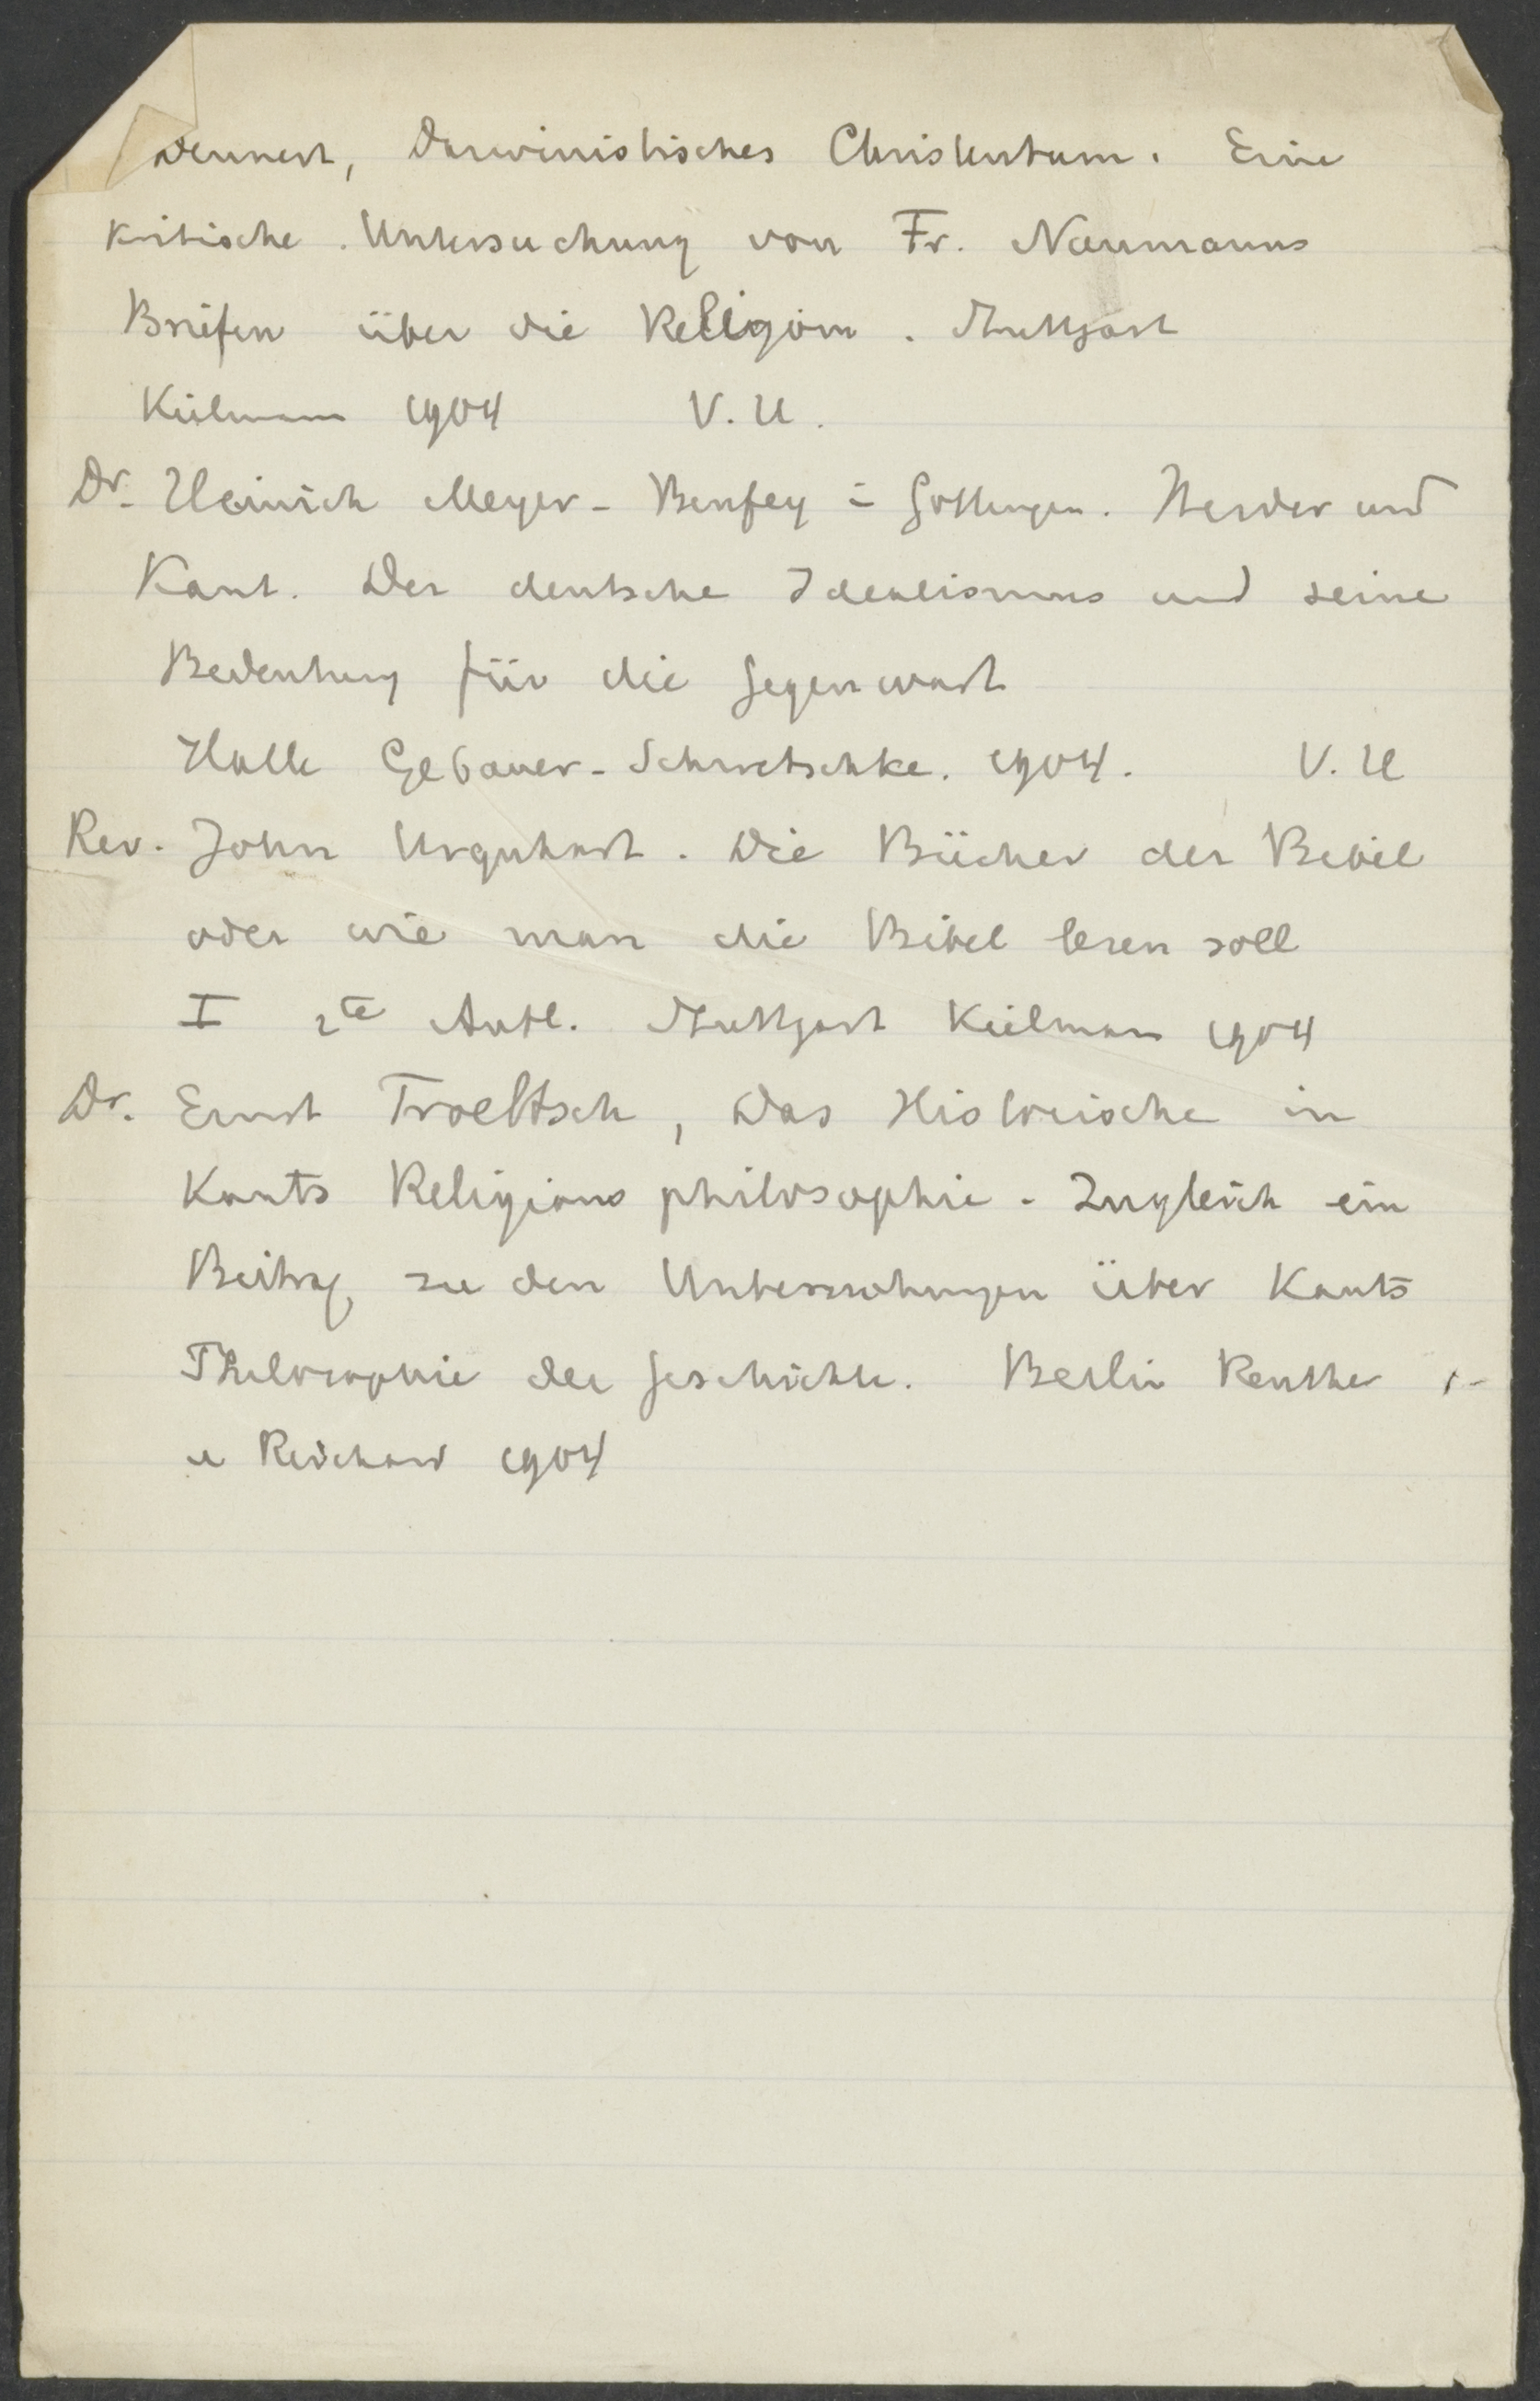 Dennert, Darwinistisches Christentum. Eine
kritische Untersuchung von Fr. Naumanns
Briefen über die Religion. Stuttgart
Kielmann 1904 V. U.
Dr. Heinrich Meyer-Benfey in Göttingen. Herder und
Kant. Der deutsche Idealismus und seine
Bedeutung für die Gegenwart
Halle Gebauer-Schwetschke. 1904. V. U
Rev. John Urquhart. Die Bücher der Bibel
oder wie man die Bibel lesen soll
I 2te Aufl. Stuttgart Kielmann 1904
Dr. Ernst Troeltsch, Das Historische in
Kants Religionsphilosophie. Zugleich ein
Beitrag zu den Untersuchungen über Kants
Philosophie der Geschichte. Berlin Reuther
u Reichard 1904